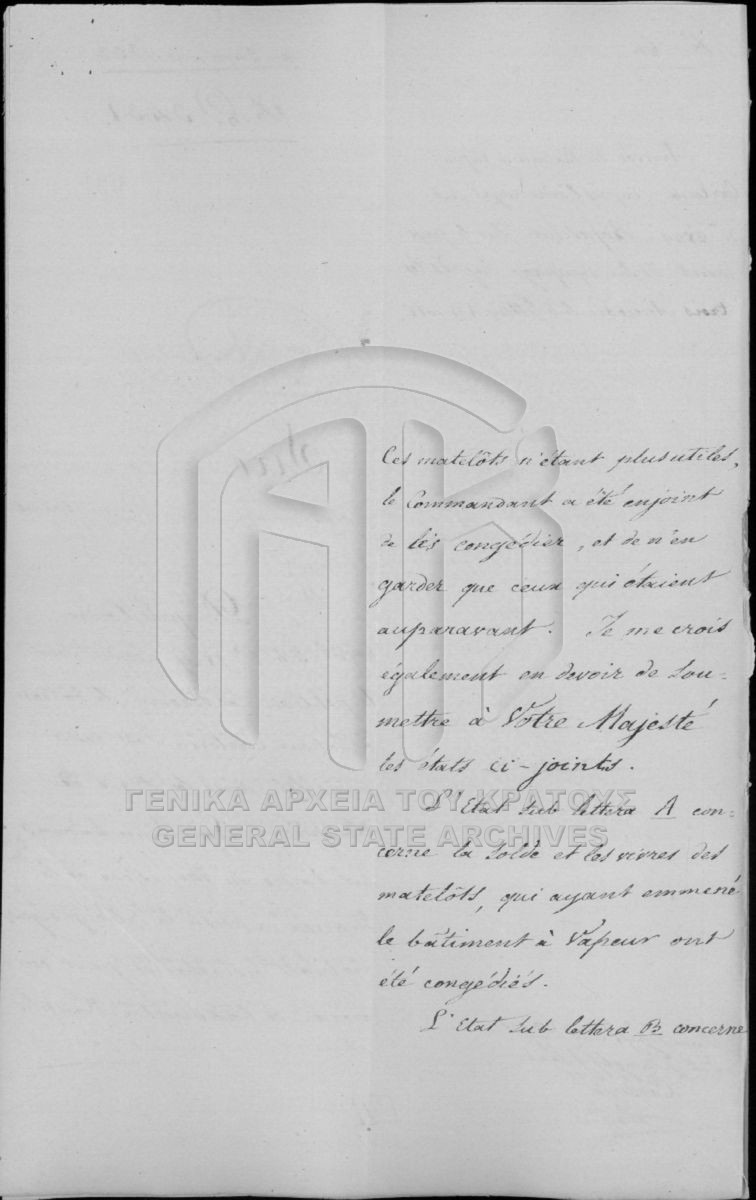 Ces matelôts n'étant plus utiles,
le Commandant a été enjoint
de les congédier, et de n'en
garder que ceux qui étaient
auparavant. Je me crois
également en devoir de sou-
mettre à Votre Majesté
les états ci-joints.
ΓΕΝΙΚΑ ΑΡΧΕΙΑ ΤΟΥ ΚΡΑΤΟΥΣ
L'Etat sub lettera A con-
GENERAL STATE ARCHIVES
cerne la solde et les vivres des
matelôts, qui ayant emmené
le bâtiment à Vapeur ont
été congédiés.
L'Etat sub lettera B concerne